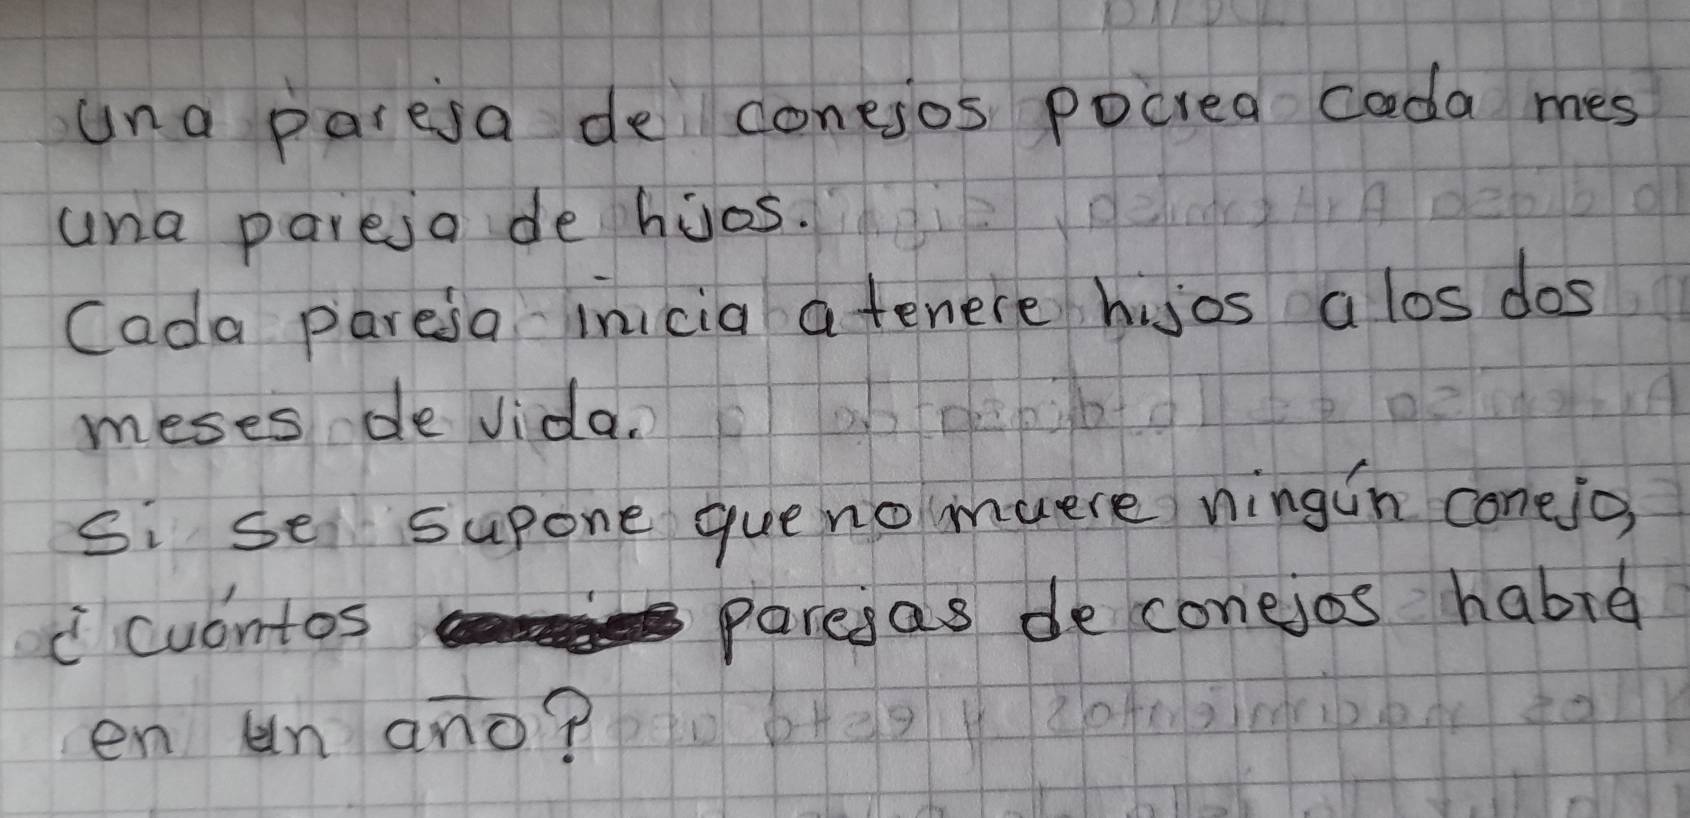 una pareja de conejos pocrea cada mes
una pareja de hijos.
Cada pareja inicia a tenere hijos a los dos
meses de vida.
Si se supone que no muere ningún conejo,
¿ cuántos parejas de conejos habrá
en un año?